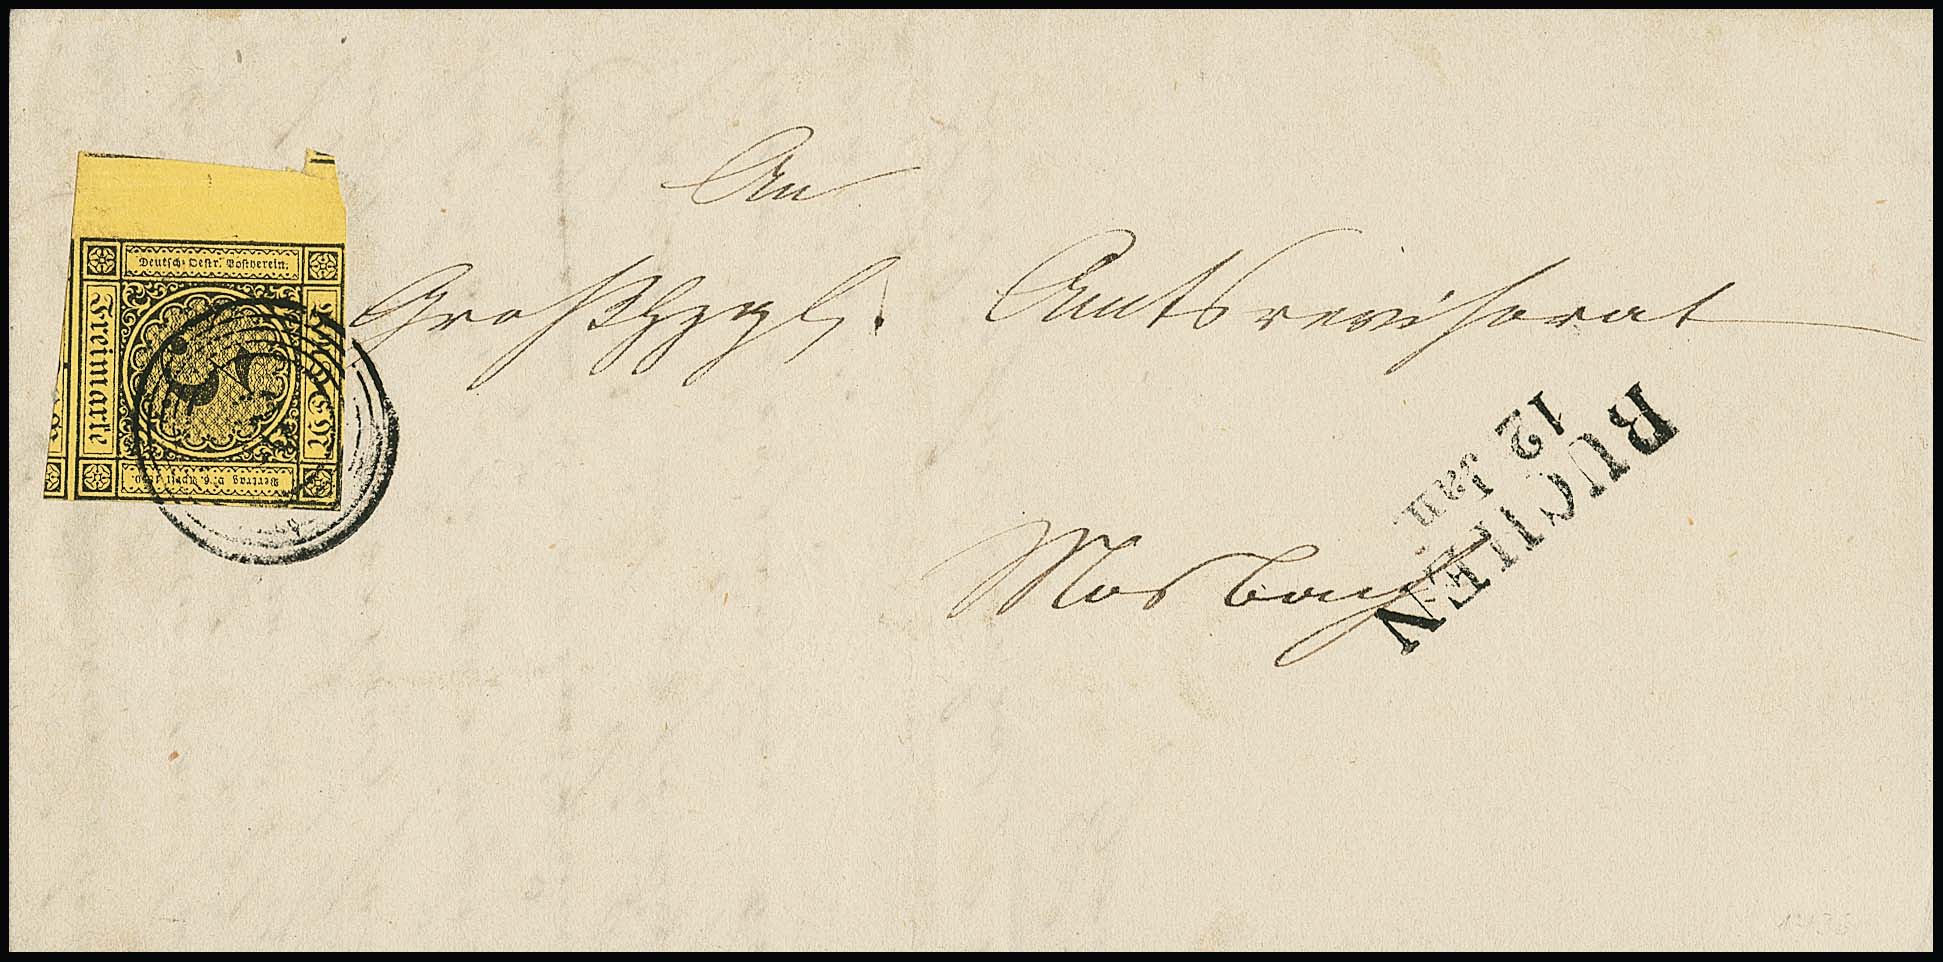 Deutsch-Oestr. Postverein.
Freimarke
Baden
Vertrag v. 6. April 1850.
An
Großhzgl. Amtsrevisorat
Mosbach
BUCHEN
12 Jan.